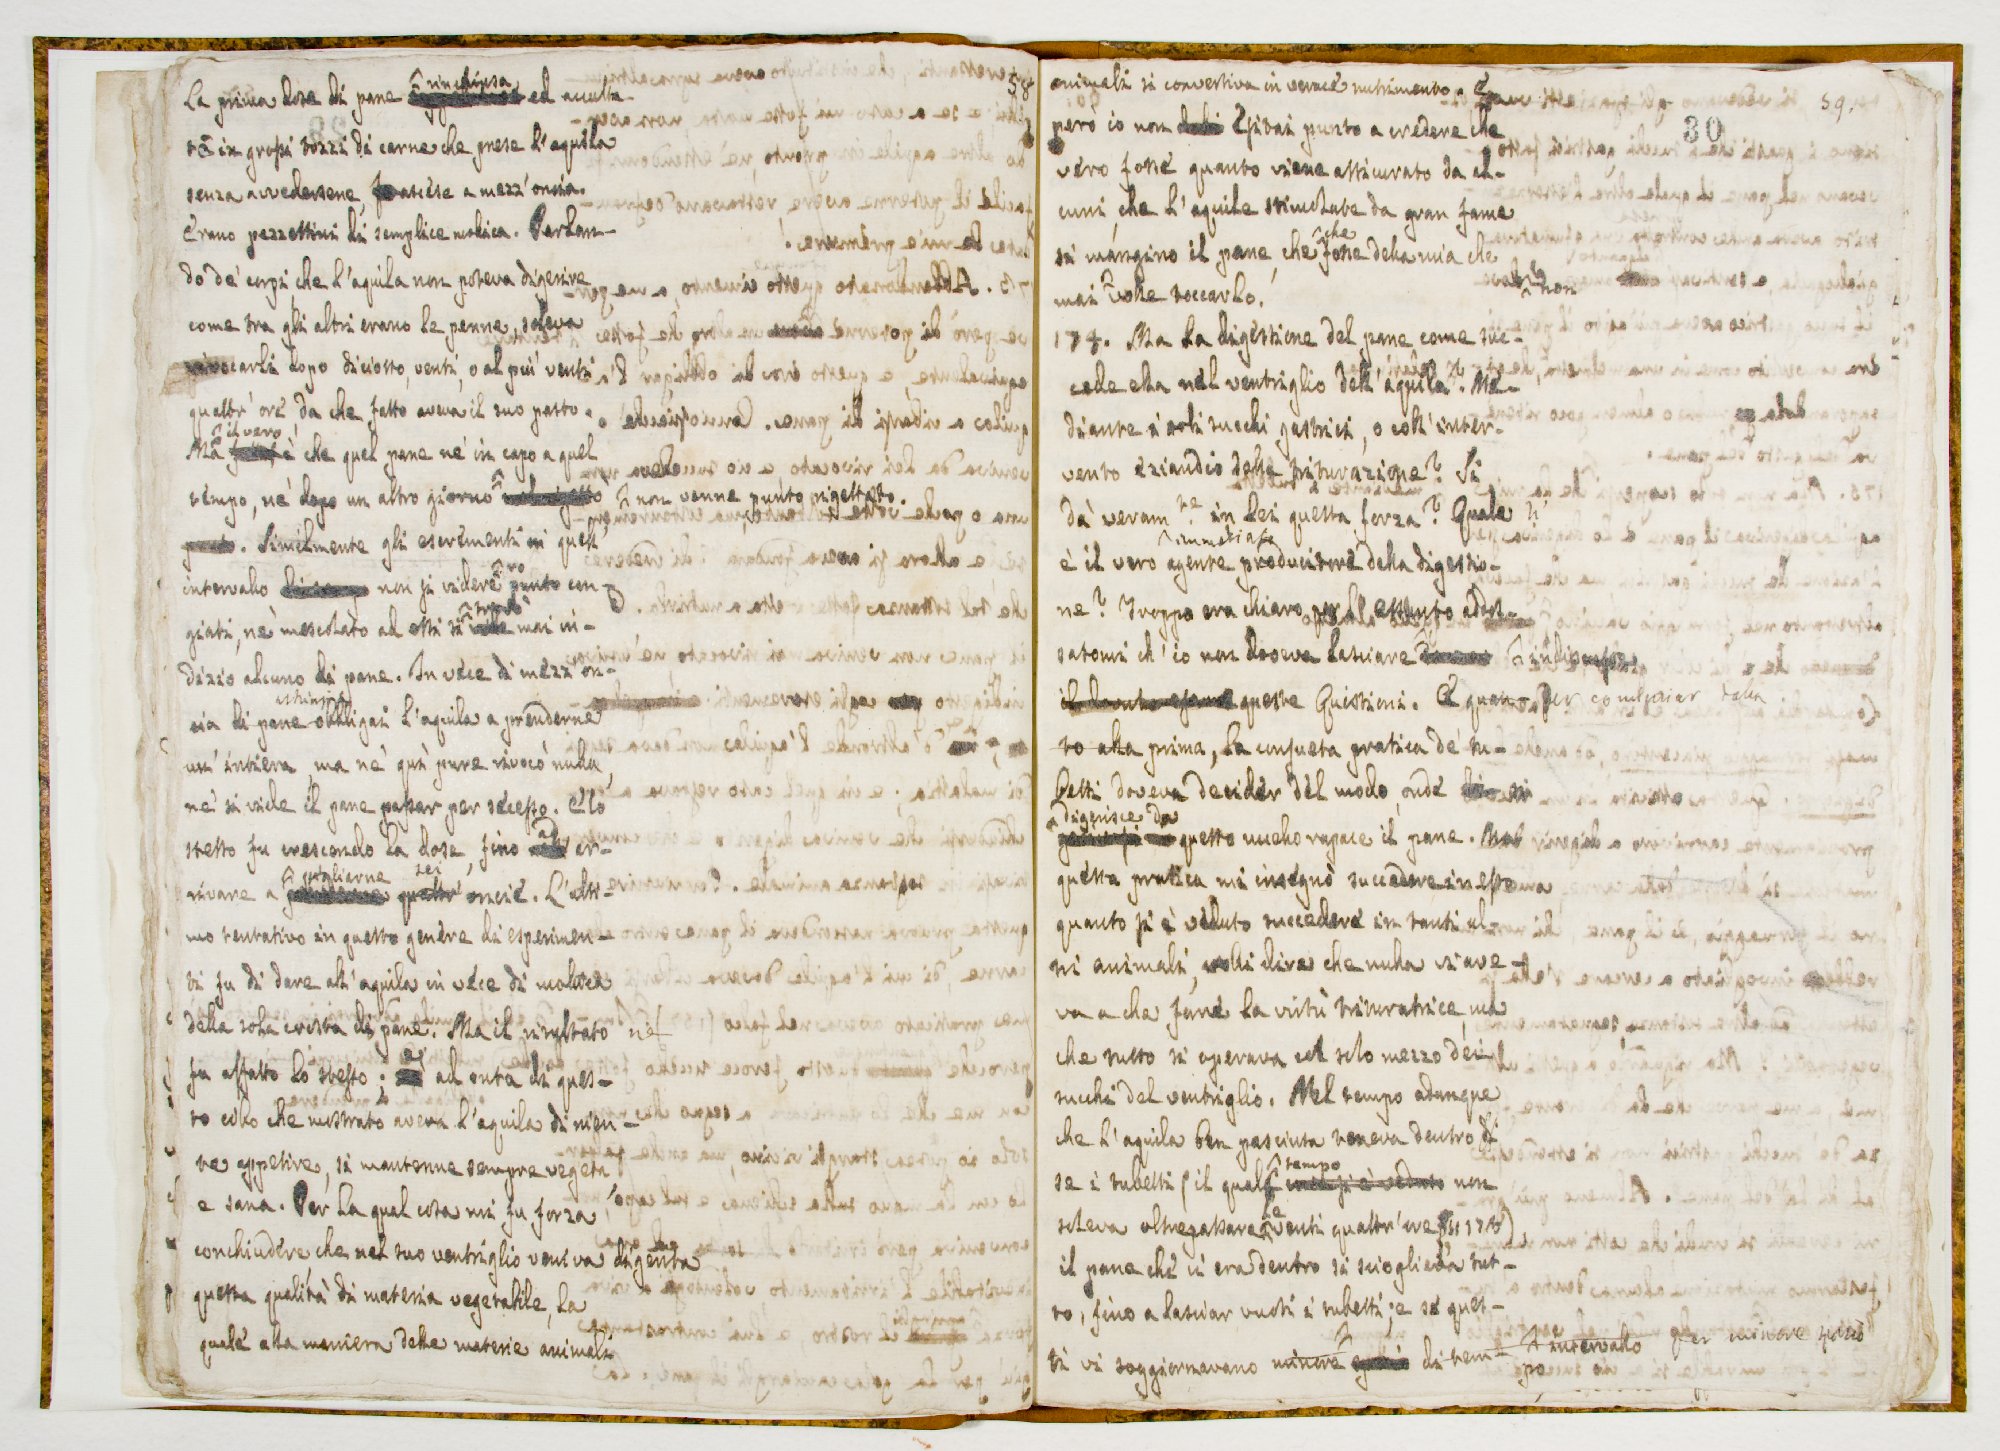 58
La prima dose di pane rinchiusa ed occulta-
ta in grossi tozzi di carne che prese l'aquila
senza avvedersene, ascese a mezz'oncia.
Erano pezzettini di semplice mollica. Parlan-
do de' corpi, che l'aquila non poteva digerire,
come tra gli altri erano le penne, soleva
rivocarli dopo diciotto, venti, o al più venti
quattr'ore, da che fatto aveva il suo pasto.
Ma il vero è che quel pane né in capo a quel
tempo, né dopo un altro giorno non venne punto rigettato.
Similmente gli escrementi in quest'
intervallo non si videro punto can-
giati, né mescolato ad essi si trovò mai in-
dizio alcuno di pane. In vece di mezz'on-
cia di pane obbligai l'aquila a prenderne
un'intiera, ma né qui pure rivocò nulla,
né si vide il pane passar per secesso. E lo
stesso fu crescendo la dose, fino ad ar-
rivare a pigliarne sei oncie. L'ulti-
mo tentativo in questo genere di esperimen-
ti fu di dare all'aquila in vece di mollica
della sola crosta di pane. Ma il risultato né
fu affatto lo stesso; e ad onta di ques-
to cibo che mostrato aveva l'aquila di nien-
te appetire, si mantenne sempre vegeta,
e sana. Per la qual cosa mi fu forza
conchiudere che nel suo ventriglio veniva digerita
questa qualità di materia vegetabile, la
quale alla maniera delle materie animali
59.
30
animali si convertiva in verace nutrimento.
però io non punto a credere che
vero fosse quanto viene assicurato da al-
cuni, che l'aquile stimolate da gran fame
si mangino il pane, che che fosse della mia che
mai non volle toccarlo.
174. Ma la digestione del pane come suc-
cede ella nel ventriglio dell'aquila? Me-
diante i soli succhi gastrici, o coll'inter-
vento eziandio della triturazione? Si
dà veramte in lei questa forza? Quale
è il vero immediato agente producitore della digestio-
ne? Troppo era chiaro per l'assunto addos-
satomi ch'io non doveva lasciare indiscusse
queste Quistioni. E quan- per cominciar dalla
to alla prima, la consueta pratica de' tu-
betti doveva decider del modo, onde si
digerisce da questo uccello rapace il pane.
questa pratica mi insegnò succedere in essa
quanto si è veduto succedere in tanti al-
tri animali, volli dire che nulla vi ave-
va a che fare la virtù trituratrice, ma
che tutto si operava col solo mezzo dei
succhi del ventriglio. Nel tempo adunque
che l'aquila ben pasciuta teneva dentro di
se i tubetti (il qual tempo non
soleva oltrepassare le venti quattr'ore
il pane che vi era dentro si scioglieva tut-
to, fino a lasciar vuoti i tubetti; e se ques-
ti vi soggiornavano minore di tem- intervallo per minore
po